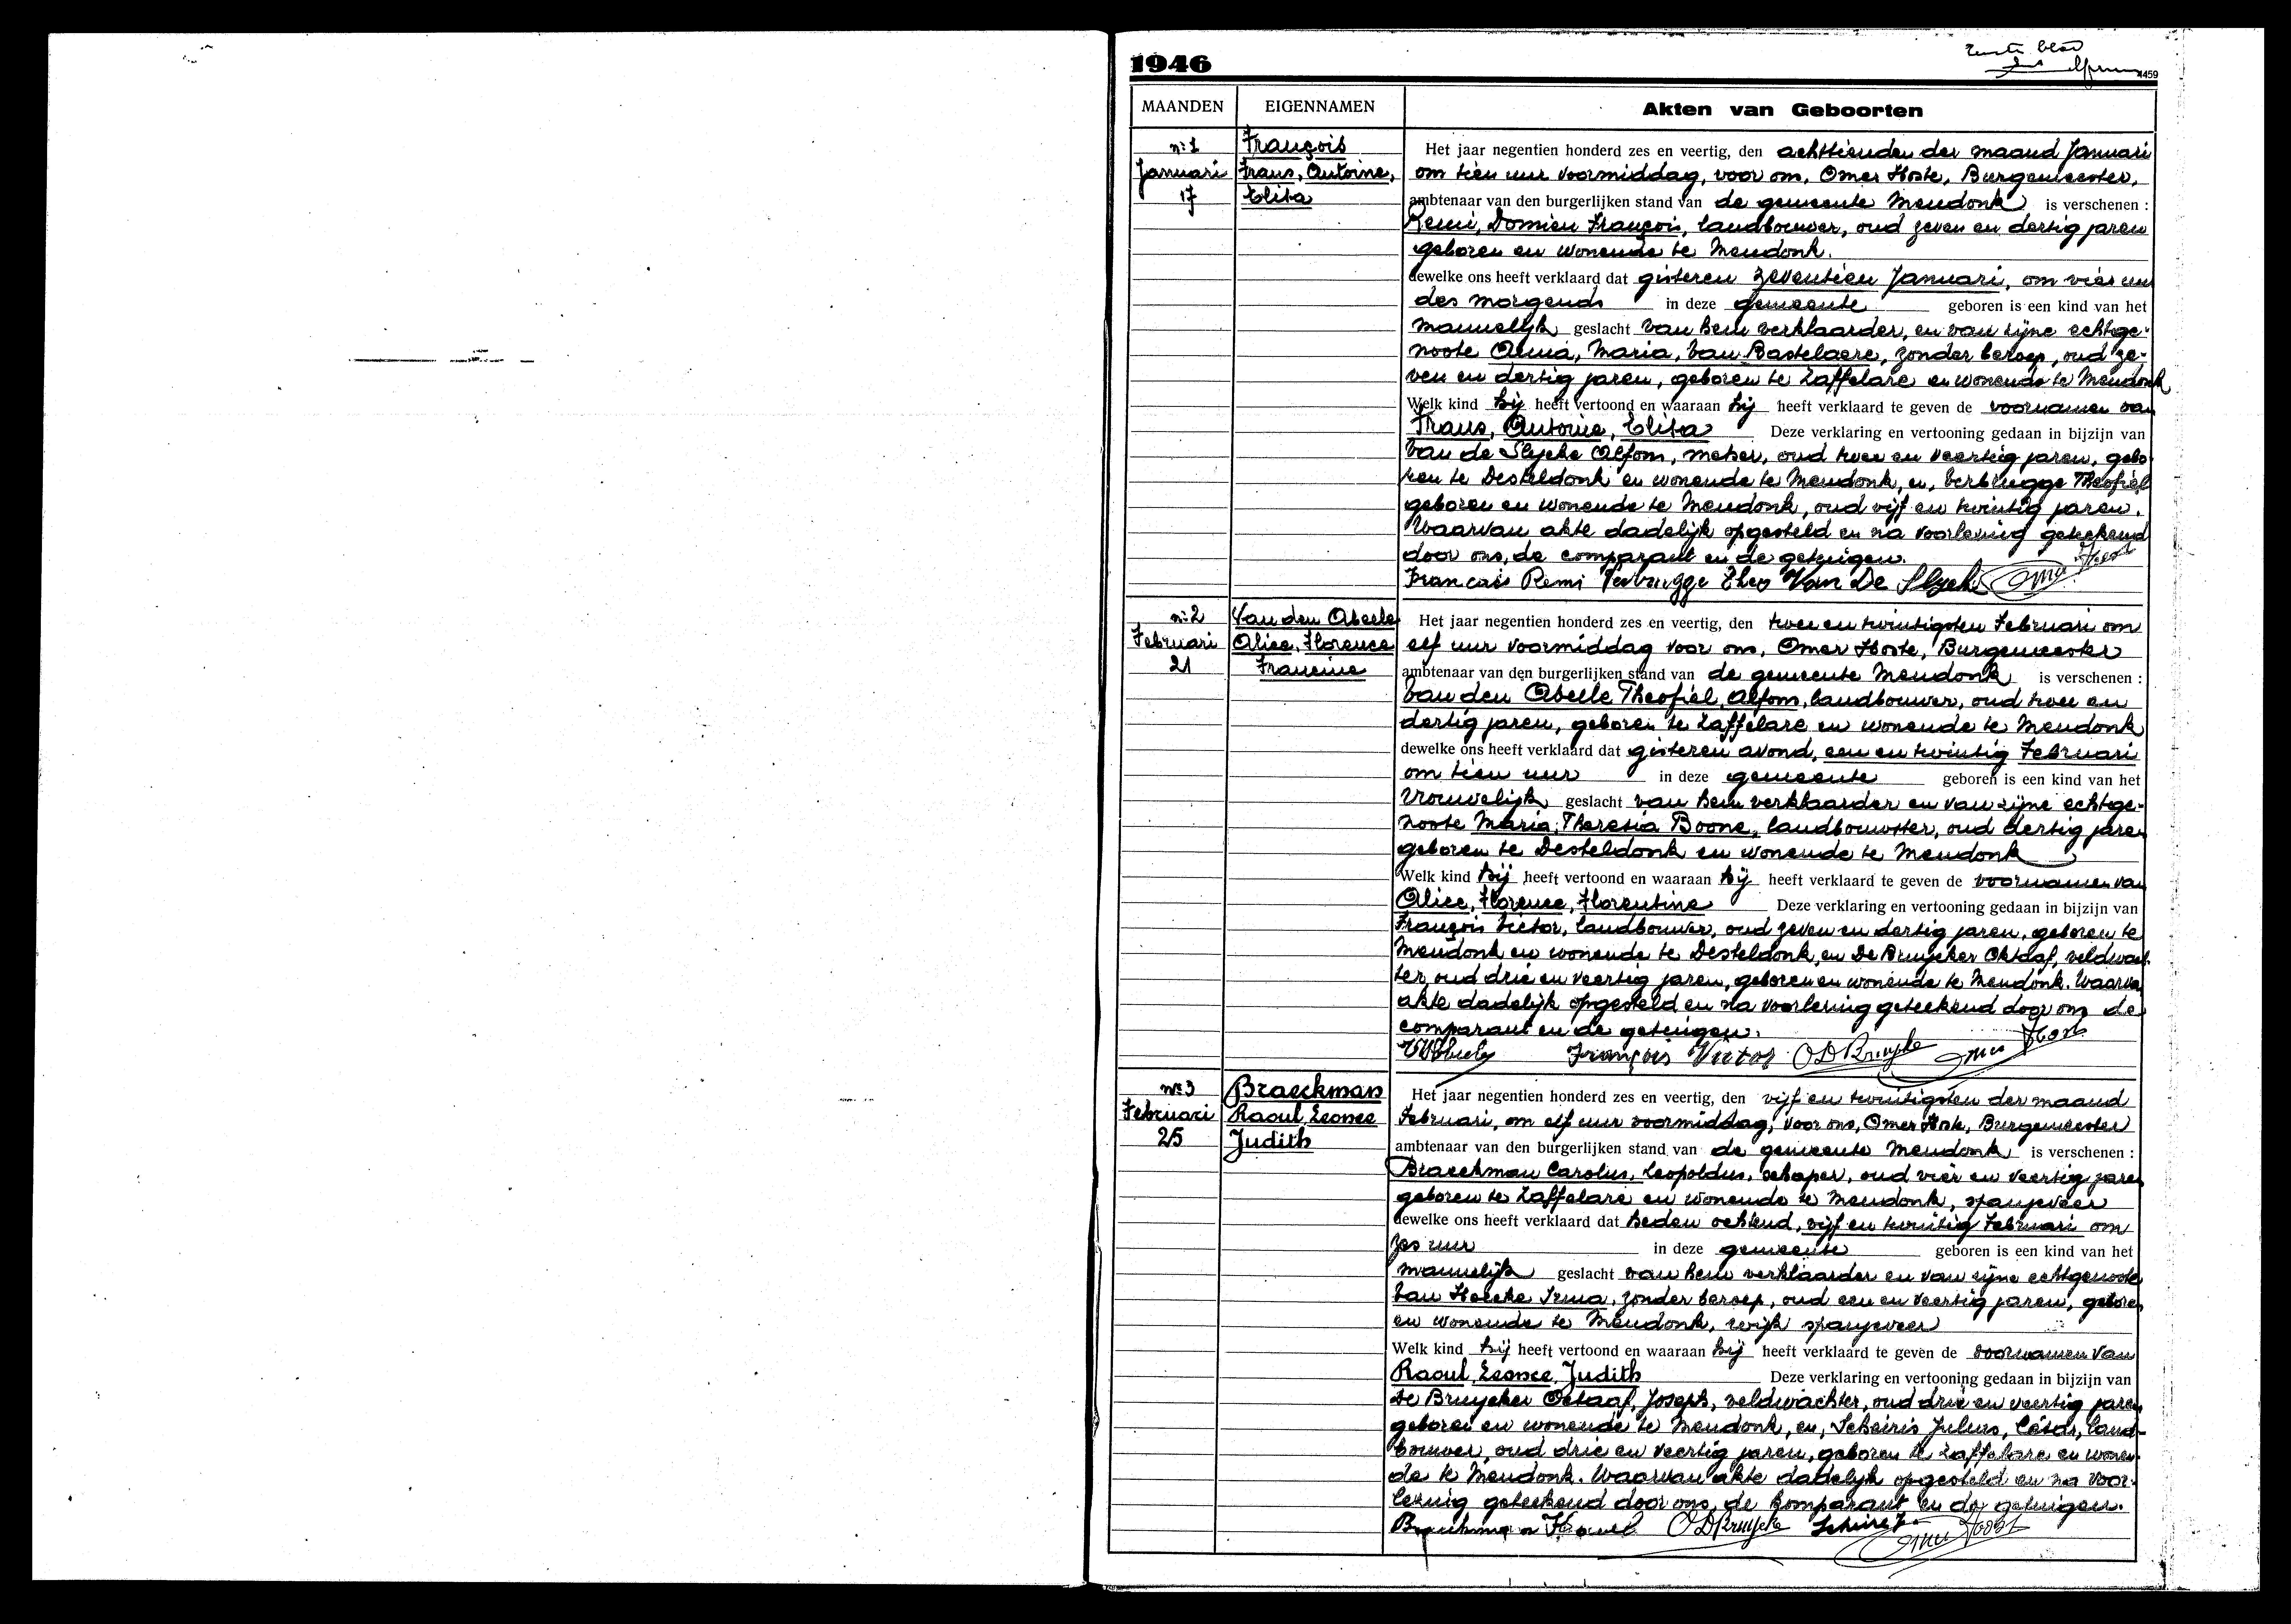 1946
4459
MAANDEN EIGENNAMEN Akten van Geboorten
nr 1
Januari
17
François
Frans, Antoine,
Elisa
Het jaar negentien honderd zes en veertig, den achttienden der maand Januari
om tien uur voormiddag, voor ons, Omer Hoste, Burgemeester,
ambtenaar van den burgerlijken stand van de gemeente Mendonk is verschenen :
Remi, Domien François, landbouwer, oud zeven en dertig jaren
geboren en wonende te Mendonk.
dewelke ons heeft verklaard dat gisteren zeventien Januari, om vier uur
des morgends in deze gemeente geboren is een kind van het
mannelijk geslacht van hem verklaarder, en van zijne echtge-
noote Anna, Maria, Van Bastelaere, zonder beroep, oud ze-
ven en dertig jaren, geboren te Zaffelare en wonende te Mendonk
Welk kind hij heeft vertoond en waaraan hij heeft verklaard te geven de voornamen van
Frans, Antoine, Elisa Deze verklaring en vertooning gedaan in bijzijn van
Van de Slycke Alfons, metser, oud twee en veertig jaren, gebo
ren te Desteldonk en wonende te Mendonk, en, Verbrugge Theofiel
geboren en wonende te Mendonk, oud vijf en twintig jaren.
Waarvan akte dadelijk opgesteld en na voorlezing geteekend
door ons, de comparant en de getuigen.
Francois Remi Verbrugge Theo Van De Slycke Omer Hoste
nr 2
Februari
21
Van den Abeele
Alice, Florence
Francine
Het jaar negentien honderd zes en veertig, den twee en twintigsten Februari om
elf uur voormiddag voor ons, Omer Hoste, Burgemeester
ambtenaar van den burgerlijken stand van de gemeente Mendonk is verschenen :
Van den Abeele Theofiel, Alfons, landbouwer, oud twee en
dertig jaren, geboren te Zaffelare en wonende te Mendonk
dewelke ons heeft verklaard dat gisteren avond, een en twintig Februari
om tien uur in deze gemeente geboren is een kind van het
vrouwelijk geslacht van hem verklaarder en van zijne echtge-
noote Maria, Theresia Boone, landbouwster, oud dertig jaren
geboren te Desteldonk en wonende te Mendonk
Welk kind hij heeft vertoond en waaraan hij heeft verklaard te geven de voornamen van
Alice, Florence, Florentine Deze verklaring en vertooning gedaan in bijzijn van
François Victor, landbouwer, oud zeven en dertig jaren, geboren te
Mendonk en wonende te Desteldonk, en De Bruycker Oktaaf, veldwach
ter, oud drie en veertig jaren, geboren en wonende te Mendonk. Waarvan
akte dadelijk opgesteld en na voorlezing geteekend door ons de
comparant en de getuigen.
François Victor O De Bruycke Omer Hoste
nr 3
Februari
25
Braeckman
Raoul, Leonce
Judith
Het jaar negentien honderd zes en veertig, den vijf en twintigsten der maand
Februari, om elf uur voormiddag, voor ons, Omer Hoste, Burgemeester
ambtenaar van den burgerlijken stand van de gemeente Mendonk is verschenen :
Braeckman Carolus, Leopoldus, schaper, oud vier en veertig jaren
geboren te Zaffelare en wonende te Mendonk, spanjeveer
dewelke ons heeft verklaard dat heden ochtend, vijf en twintig Februari om
zes uur in deze gemeente geboren is een kind van het
mannelijk geslacht van hem verklaarder en van zijne echtgenoote
Van Hoecke Irma, zonder beroep, oud een en veertig jaren, geboren
en wonende te Mendonk, wijk spanjeveer
Welk kind hij heeft vertoond en waaraan hij heeft verklaard te geven de voornamen van
Raoul, Leonce, Judith Deze verklaring en vertooning gedaan in bijzijn van
De Bruycker Octaaf, Joseph, veldwachter, oud drie en veertig jaren
geboren en wonende te Mendonk, en, Scheiris Julius, César, land-
bouwer, oud drie en veertig jaren, geboren te Zaffelare en wonen-
de te Mendonk. Waarvan akte dadelijk opgesteld en na voor-
lezing geteekend door ons, de komparant en de getuigen.
Braeckman Karel O De Bruycke Omer Hoste